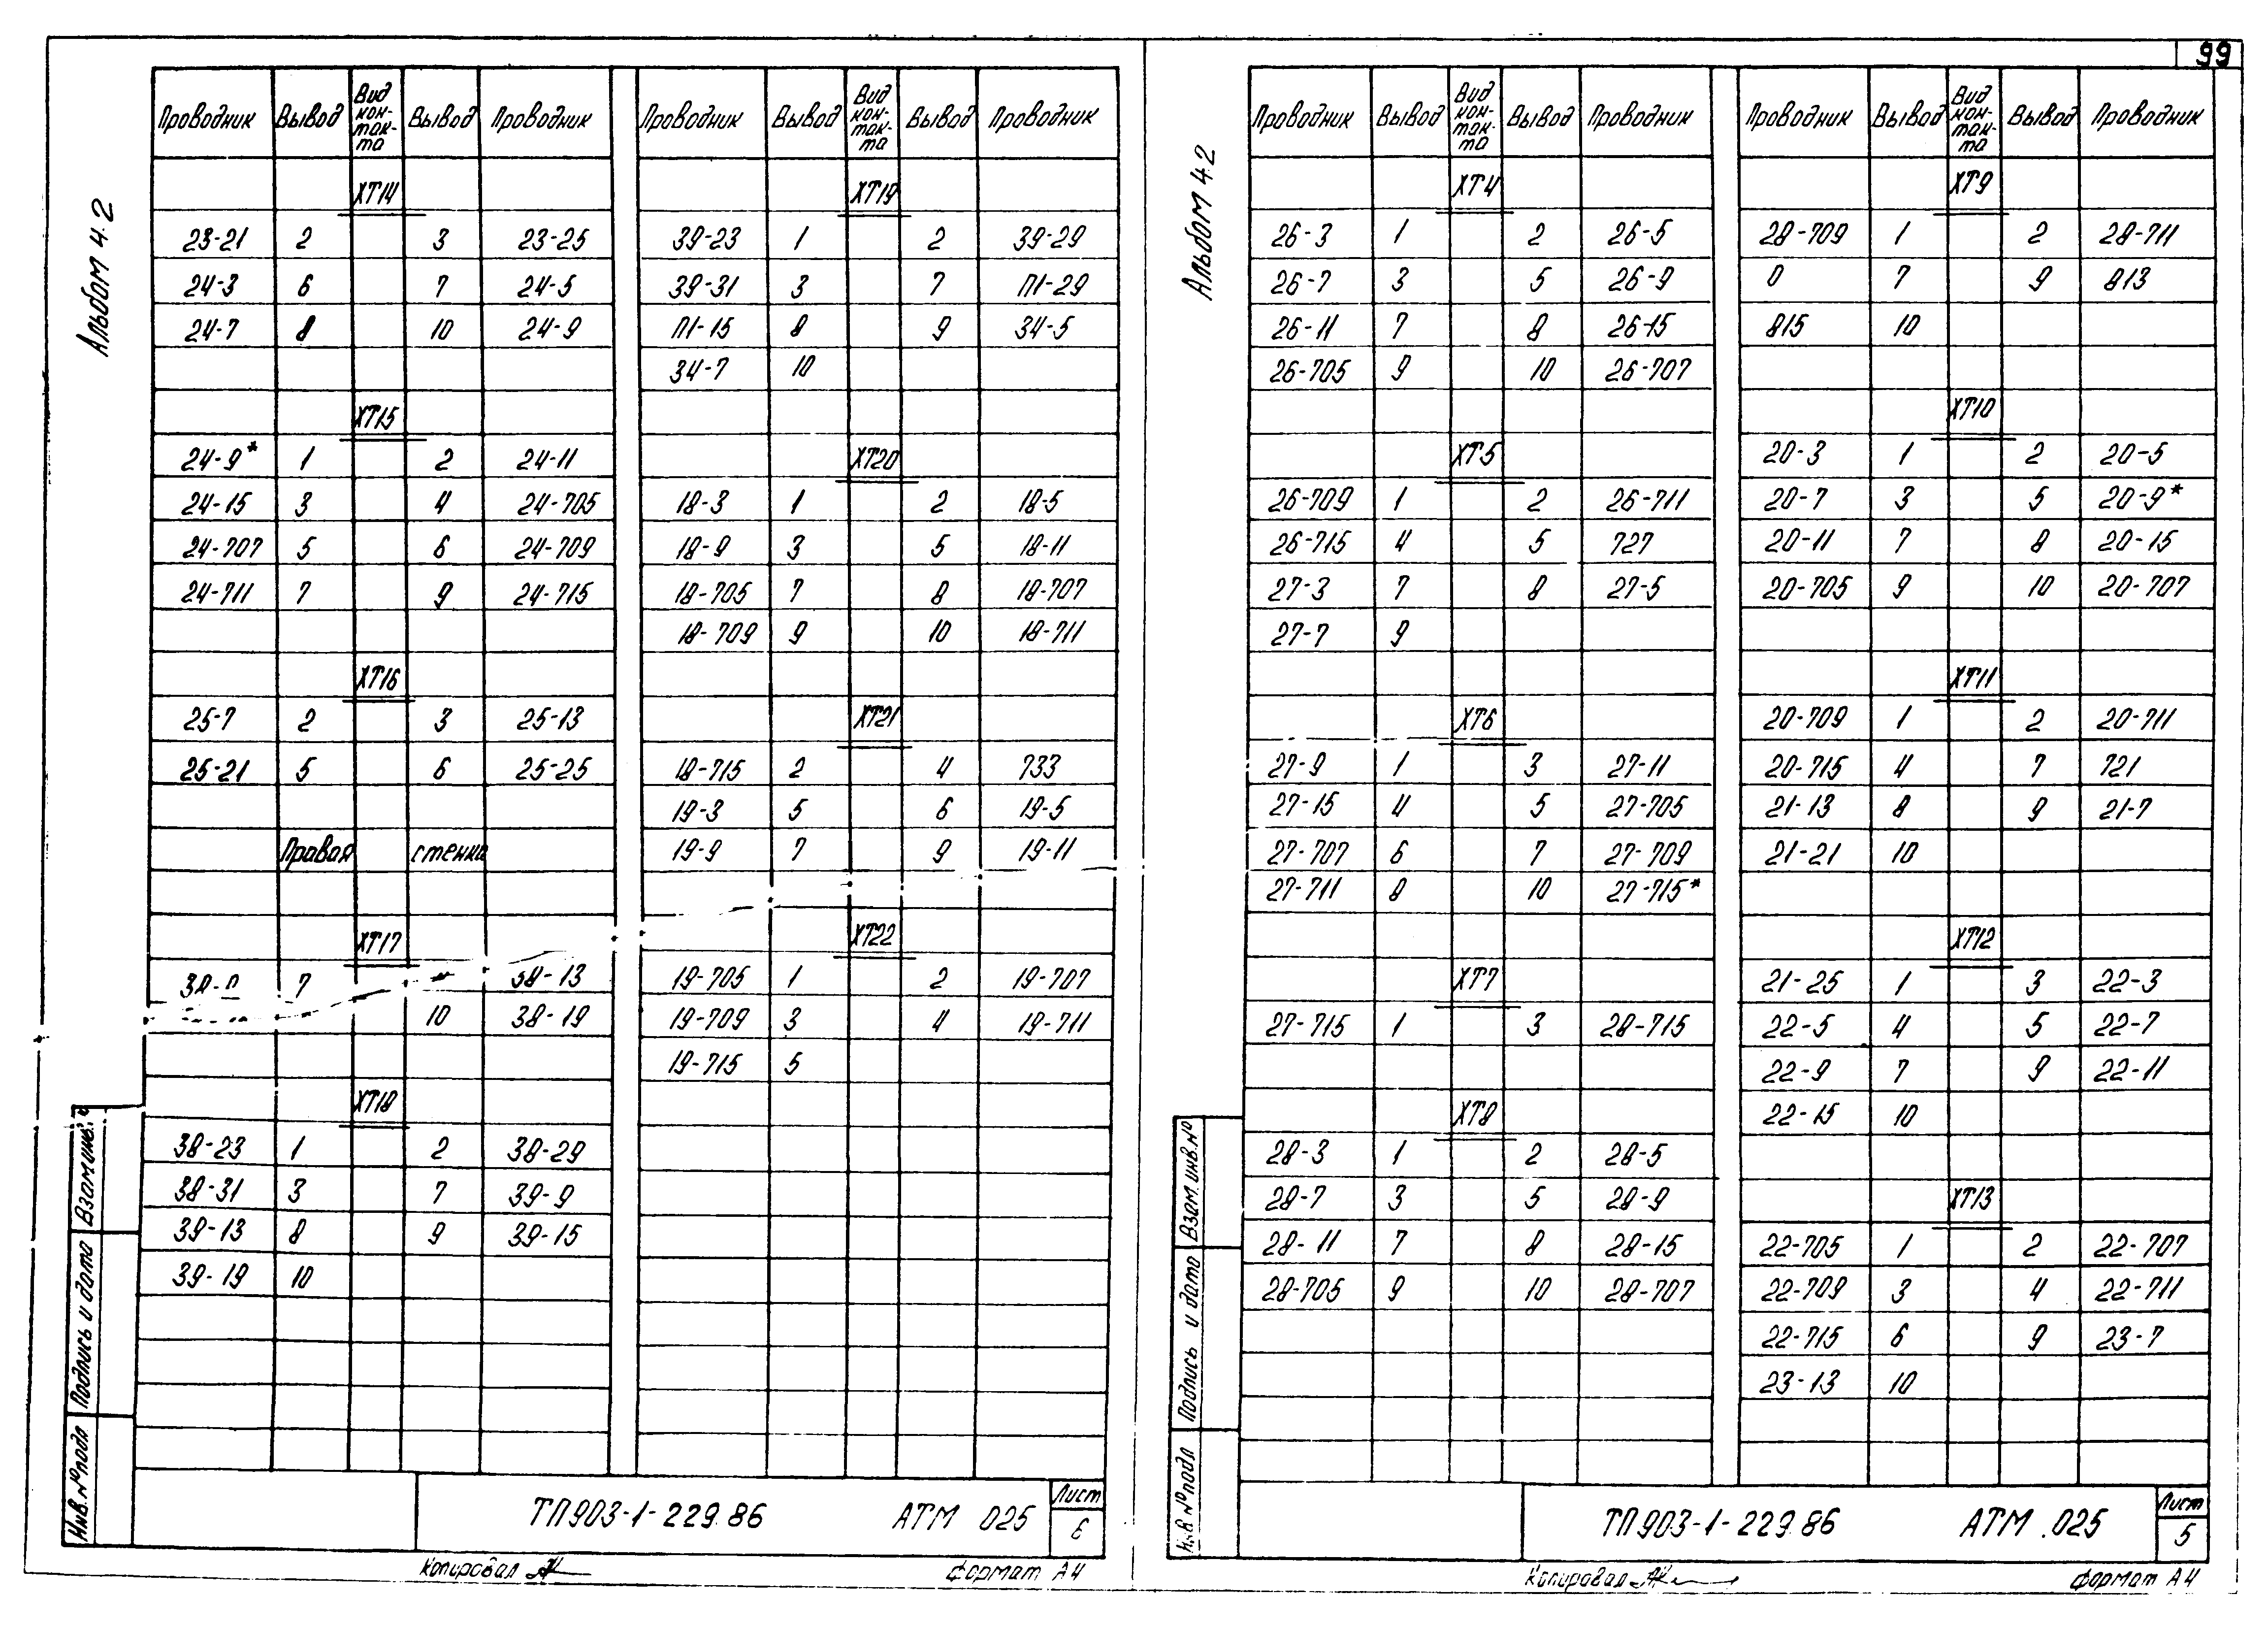 99
Альбом 4.2
Проводник Вывод Вид кон-так-та Вывод Проводник
ХТ14
23-21 2 3 23-25
24-3 6 7 24-5
24-7 8 10 24-9
ХТ15
24-9* 1 2 24-11
24-15 3 4 24-705
24-707 5 6 24-709
24-711 7 9 24-715
ХТ16
25-7 2 3 25-13
25-21 5 6 25-25
Правая стенка
ХТ17
7 38-13
10 38-19
ХТ18
38-23 1 2 38-29
38-31 3 7 39-9
39-13 8 9 39-15
39-19 10
Проводник Вывод Вид кон-так-та Вывод Проводник
ХТ19
39-23 1 2 39-29
39-31 3 7 П1-29
П1-15 8 9 34-5
34-7 10
ХТ20
18-3 1 2 18-5
18-9 3 5 18-11
18-705 7 8 18-707
18-709 9 10 18-711
ХТ21
18-715 2 4 733
19-3 5 6 19-5
19-9 7 9 19-11
ХТ22
19-705 1 2 19-707
19-709 3 4 19-711
19-715 5
Взам.инв.№
Подпись и дата
Инв.№подл
ТП903-1-229.86 АТМ 025
Лист
6
Копировал
Формат А4
Альбом 4.2
Проводник Вывод Вид кон-так-та Вывод Проводник
ХТ4
26-3 1 2 26-5
26-7 3 5 26-9
26-11 7 8 26-15
26-705 9 10 26-707
ХТ5
26-709 1 2 26-711
26-715 4 5 727
27-3 7 8 27-5
27-7 9
ХТ6
27-9 1 3 27-11
27-15 4 5 27-705
27-707 6 7 27-709
27-711 8 10 27-715*
ХТ7
27-715 1 3 28-715
ХТ8
28-3 1 2 28-5
28-7 3 5 28-9
28-11 7 8 28-15
28-705 9 10 28-707
Проводник Вывод Вид кон-так-та Вывод Проводник
ХТ9
28-709 1 2 28-711
0 7 9 813
815 10
ХТ10
20-3 1 2 20-5
20-7 3 5 20-9*
20-11 7 8 20-15
20-705 9 10 20-707
ХТ11
20-709 1 2 20-711
20-715 4 7 721
21-13 8 9 21-7
21-21 10
ХТ12
21-25 1 3 22-3
22-5 4 5 22-7
22-9 7 9 22-11
22-15 10
ХТ13
22-705 1 2 22-707
22-709 3 4 22-711
22-715 6 9 23-7
23-13 10
Взам.инв.№
Подпись и дата
Инв.№подл
ТП903-1-229.86 АТМ.025
Лист
5
Копировал
Формат А4